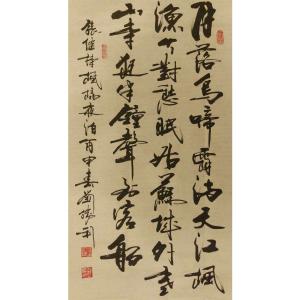 月落烏啼霜滿天江楓
漁火對愁眠姑蘇城外寒
山寺夜半鐘聲到客船
張繼詩楓橋夜泊丙申春